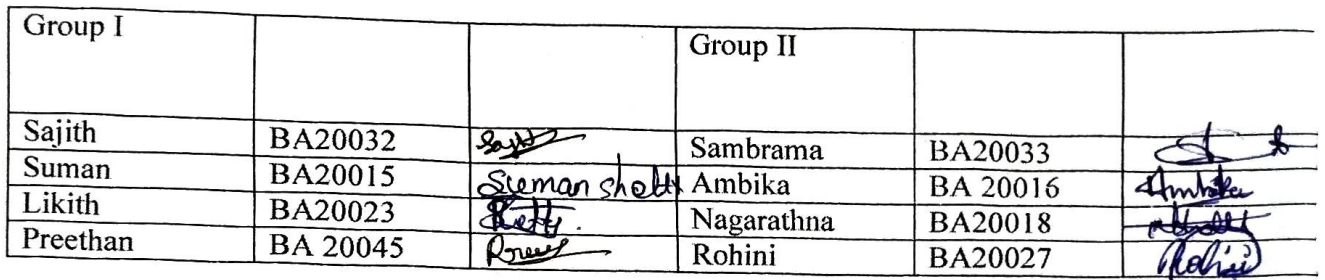 Group I Group II
Sajith BA20032 Sajith Sambrama BA20033
Suman BA20015 Suman shetty Ambika BA 20016 Ambika
Likith BA20023 Nagarathna BA20018
Preethan BA 20045 Rohini BA20027 Rohini